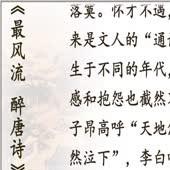 《最风流 醉唐诗》
落寞。怀才不遇，
来是文人的“通
生于不同的年代，
感和抱怨也截然
子昂高呼“天地
然泣下”，李白